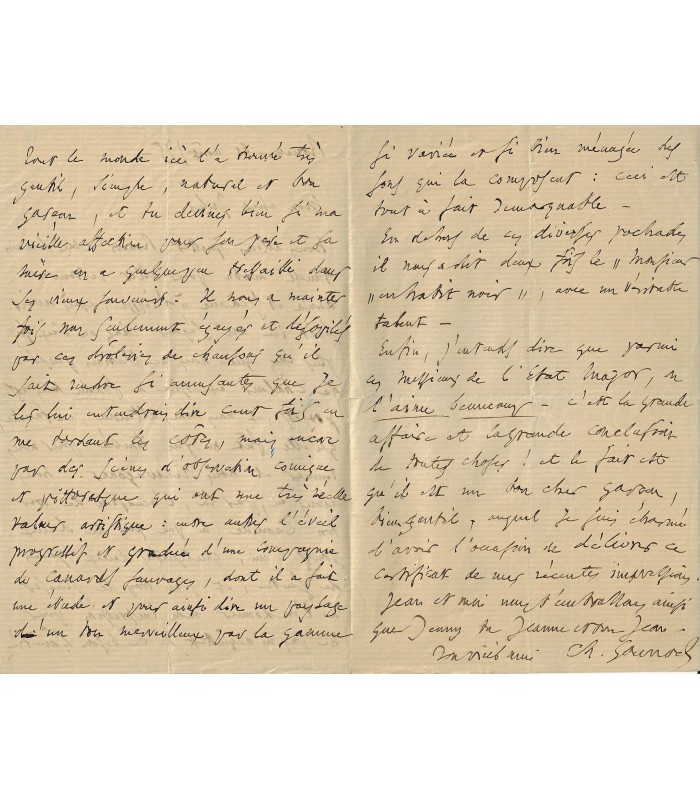 Tout le monde ici l'a trouvé très
gentil, simple, naturel et bon
garçon, et tu devines bien si ma
vieille affection pour son père et sa
mère en a quelque peu tressailli dans
ses vieux souvenirs. Il nous a maintes
fois non seulement égayés et
par ces drôleries de chansons qu'il
sait rendre si amusantes que je
les lui entendrais dire cent fois en
me tordant les côtes, mais encore
par des scènes d'observation comique
et pittoresque qui ont une très réelle
valeur artistique : entre autres l'éveil
progressif et gradué d'une compagnie
de canards sauvages, dont il a fait
une étude et pour ainsi dire un paysage
d'un ton merveilleux par la gamme
si variée et si bien ménagée des
sons qui la composent : ceci est
tout à fait remarquable —
En dehors de ces diverses pochades
il nous a dit deux fois le „ Monsieur
„ en habit noir „, avec un véritable
talent —
Enfin, j'entends dire que parmi
ces messieurs de l'Etat Major, on
l'aime beaucoup — c'est la grande
affaire et la grande conclusion
de toutes choses ! et le fait est
qu'il est un bon cher garçon,
bien gentil, auquel je suis charmé
d'avoir l'occasion de délivrer ce
certificat de mes récentes impressions.
Jean et moi nous t'embrassons ainsi
que Jenny ta Jeanne et ton Jean —
Ton vieil ami Ch. Gounod